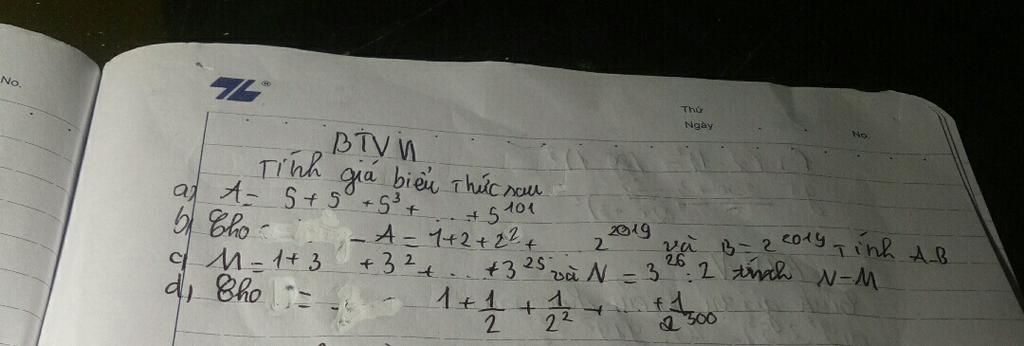 No.
Thứ
Ngày
No.
BTVN
Tính giá biểu thức sau
a) A = 5 + 5² + 5³ + ... + 5¹⁰¹
b) Cho A = 1 + 2 + 2² + 2²⁰¹⁹ và B = 2²⁰¹⁹ Tính A-B
c) M = 1 + 3 + 3² + ... + 3²⁵ và N = 3²⁶ : 2 tính N-M
d, Cho = 1 + 1/2 + 1/2² + ... + 1/2⁵⁰⁰